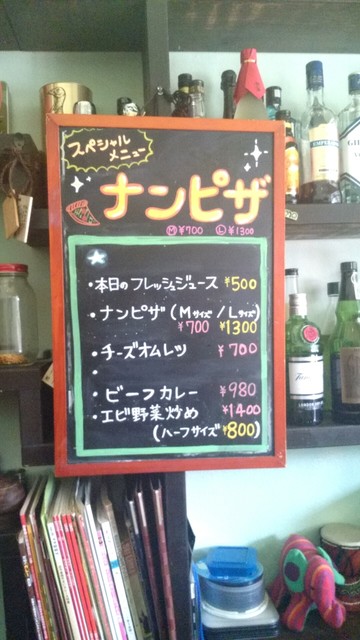 スペシャル
メニュー
ナンピザ
Ⓜ¥700 Ⓛ¥1300
・本日のフレッシュジュース ¥500
・ナンピザ(Mサイズ/Lサイズ)
¥700 ¥1300
・チーズオムレツ ¥700
・
・ビーフカレー ¥980
・エビ野菜炒め ¥1400
(ハーフサイズ ¥800)